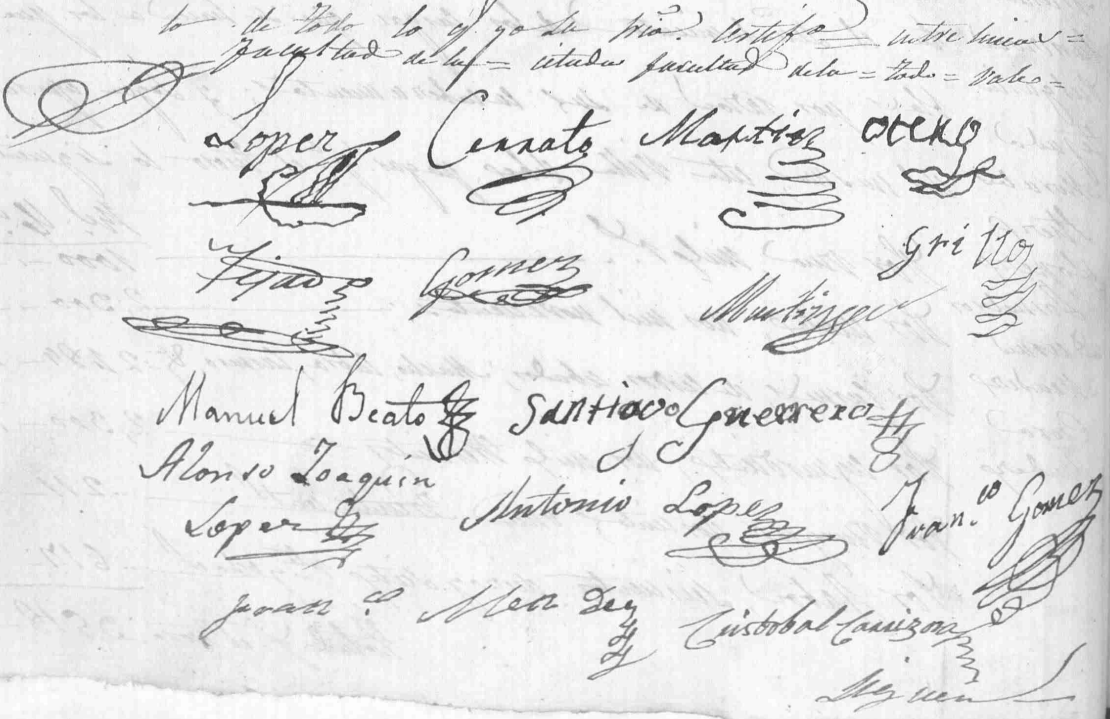 to de todo lo q. yo el srio. Certifco = entre lineas =
facultad de la = citada facultad dela = todo = vale =
Lopez Cerrato Martinz oreno
Tejado Gomez Grillo
Martinez
Manuel Beato Santiago Guerrero
Alonso Joaquin
Lopez Antonio Lopez Fran.co Gomez
Fran co Mendez Cristobal Carrizon